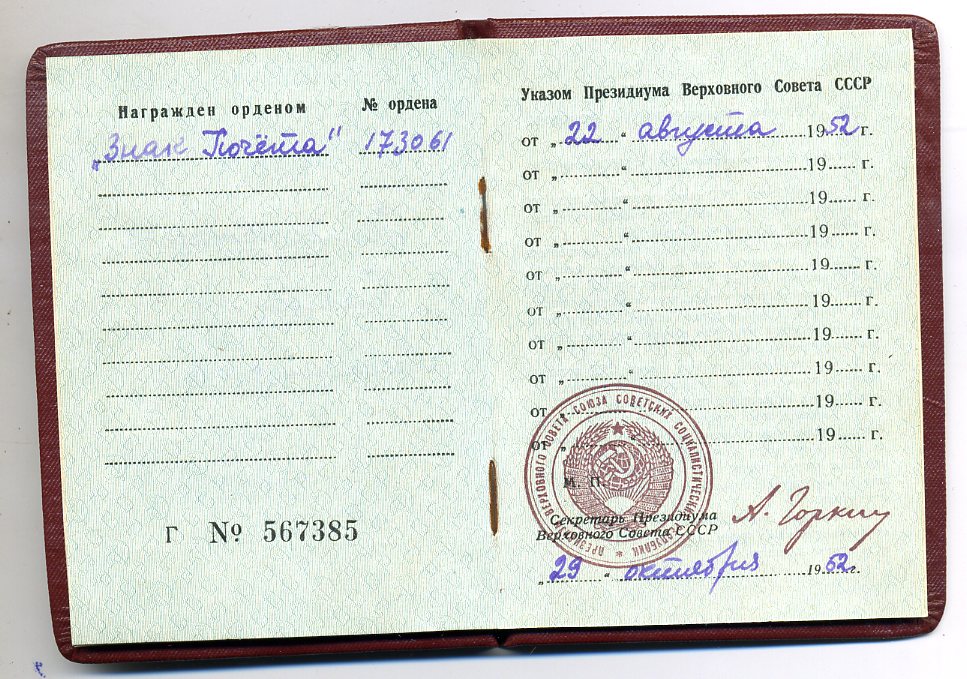 Награжден орденом № ордена
„Знак Почёта" 173061
Г № 567385
Указом Президиума Верховного Совета СССР
от „ 22 “ августа 1952 г.
от „ “ 19 г.
от „ “ 19 г.
от „ “ 19 г.
от „ “ 19 г.
от „ “ 19 г.
от „ “ 19 г.
от „ “ 19 г.
от „ “ 19 г.
от „ “ 19 г.
ПРЕЗИДИУМ ВЕРХОВНОГО СОВЕТА СОЮЗА СОВЕТСКИХ СОЦИАЛИСТИЧЕСКИХ РЕСПУБЛИК
М. П.
Секретарь Президиума
Верховного Совета СССР
А. Горкин
„ 29 “ октября 1952 г.